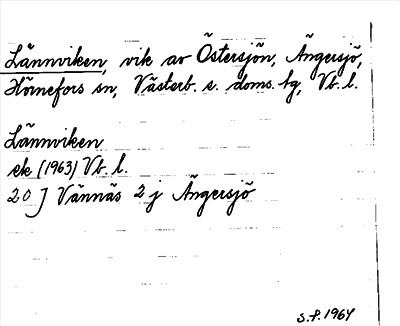 Lännviken, vik av Östersjön, Ängersjö,
Hörnefors sn, Västerb. s. doms. hg, Vb. l.
Lännviken
ek (1963) Vb. l.
20 J Vännäs 2 j Ängersjö
S.P. 1964